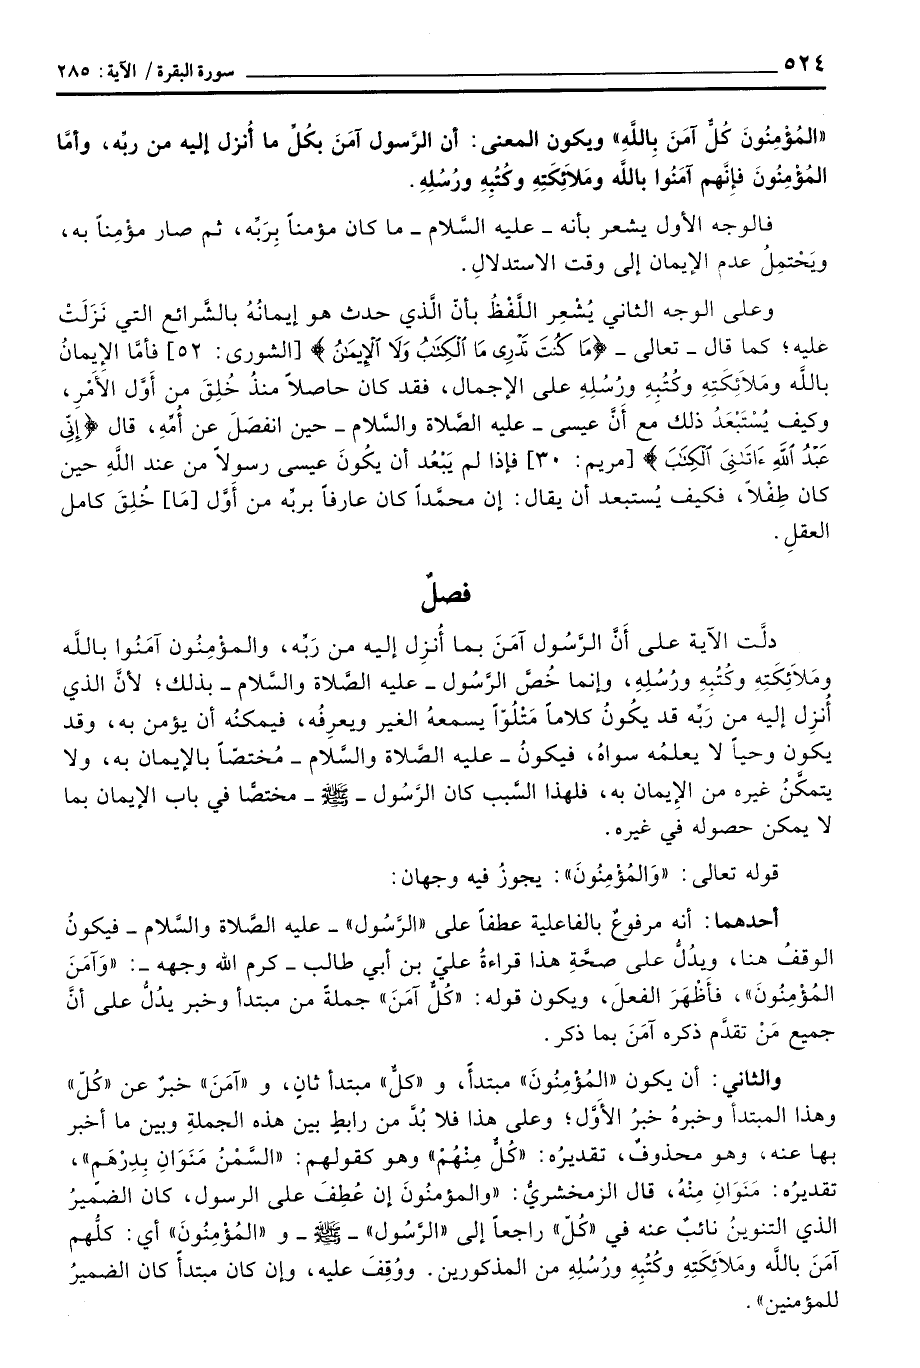 ٥٢٤ سورة البقرة / الآية: ٢٨٥
«المُؤْمِنُونَ كُلٌّ آمَنَ بِاللَّهِ» ويكون المعنى: أن الرَّسول آمَنَ بكُلِّ ما أُنزل إليه من ربِّه، وأمَّا
المُؤْمِنُونَ فإنَّهم آمَنُوا بالله ومَلاَئِكَتِهِ وكُتُبِهِ ورُسُلِهِ.
فالوجه الأول يشعر بأنه - عليه السَّلام - ما كان مؤمناً بِرَبِّه، ثم صار مؤمِناً به،
ويَحْتمِلُ عدم الإيمان إلى وقت الاستدلالِ.
وعلى الوجه الثاني يُشْعِر اللَّفْظُ بأنّ الَّذي حدث هو إيمانُهُ بالشَّرائع التي نَزَلَتْ
عليه؛ كما قال - تعالى - ﴿مَا كُنتَ تَدْرِى مَا ٱلْكِتَٰبُ وَلَا ٱلْإِيمَٰنُ﴾ [الشورى: ٥٢] فأمَّا الإيمانُ
بالله ومَلاَئِكَتِهِ وكُتُبِهِ ورُسُلِهِ على الإجمال، فقد كان حاصلاً منذُ خُلِقَ من أوَّل الأمْرِ،
وكيف يُسْتَبْعَدُ ذلك مع أنَّ عيسى - عليه الصَّلاة والسَّلام - حين انفصَلَ عن أُمِّهِ، قال ﴿إِنِّى
عَبْدُ ٱللَّهِ ءَاتَىٰنِىَ ٱلْكِتَٰبَ﴾ [مريم: ٣٠] فإذا لم يَبْعُد أن يكُونَ عيسى رسولاً من عند اللَّهِ حين
كان طِفْلاً، فكيف يُستبعد أن يقال: إن محمَّداً كان عارفاً بربِّه من أوَّل [مَا] خُلِقَ كامل
العقلِ.
فصلٌ
دلَّت الآية على أنَّ الرَّسُول آمَنَ بما أُنزِل إليه من رَبِّه، والمؤْمِنُون آمَنُوا بالله
ومَلاَئِكَتِهِ وكُتُبِهِ ورُسُلِهِ، وإنما خُصَّ الرَّسُول - عليه الصَّلاة والسَّلام - بذلك؛ لأنَّ الذي
أُنزِل إليه من رَبِّه قد يكُونُ كلاماً مَتْلُوّاً يسمعهُ الغير ويعرِفُه، فيمكنُه أن يؤمن به، وقد
يكون وحياً لا يعلمُه سواهُ، فيكونُ - عليه الصَّلاة والسَّلام - مُختصّاً بالإيمان به، ولا
يتمكَّنُ غيره من الإيمان به، فلهذا السَّبب كان الرَّسُول - ﷺ - مختصًّا في باب الإيمان بما
لا يمكن حصوله في غيره.
قوله تعالى: «وَالمُؤْمِنُونَ»: يجوزُ فيه وجهان:
أحدهما: أنه مرفوعٌ بالفاعلية عطفاً على «الرَّسُول» - عليه الصَّلاة والسَّلام - فيكونُ
الوقفُ هنا، ويدُلُّ على صحَّةِ هذا قراءةُ عليّ بن أبي طالب - كرم الله وجهه -: «وَآمَنَ
المُؤْمِنُونَ»، فأَظْهَرَ الفعلَ، ويكون قوله: «كُلٌّ آمَنَ» جملةً من مبتدأ وخبر يدُلُّ على أنَّ
جميع مَنْ تقدَّم ذكره آمَنَ بما ذكر.
والثاني: أن يكون «المُؤْمِنُونَ» مبتدأً، و «كلٌّ» مبتدأ ثانٍ، و «آمَنَ» خبرٌ عن «كُلّ»
وهذا المبتدأ وخبرهُ خبرُ الأوَّل؛ وعلى هذا فلا بُدَّ من رابطٍ بين هذه الجملةِ وبين ما أخبر
بها عنه، وهو محذوفٌ، تقديرُه: «كُلٌّ مِنْهُمْ» وهو كقولهم: «السَّمْنُ مَنَوَانِ بِدِرْهَم»،
تقديرُه: مَنَوَانِ مِنْهُ، قال الزمخشريُّ: «والمؤمنُونَ إن عُطِفَ على الرسول، كان الضَّميرُ
الذي التنوينُ نائبٌ عنه في «كُلّ» راجعاً إلى «الرَّسُول» - ﷺ - و «المُؤْمِنُونَ» أي: كلُّهم
آمَنَ بالله ومَلاَئِكَتِهِ وكُتُبِهِ ورُسُلِهِ من المذكورين. ووُقِفَ عليه، وإن كان مبتدأً كان الضميرُ
للمؤمنين».